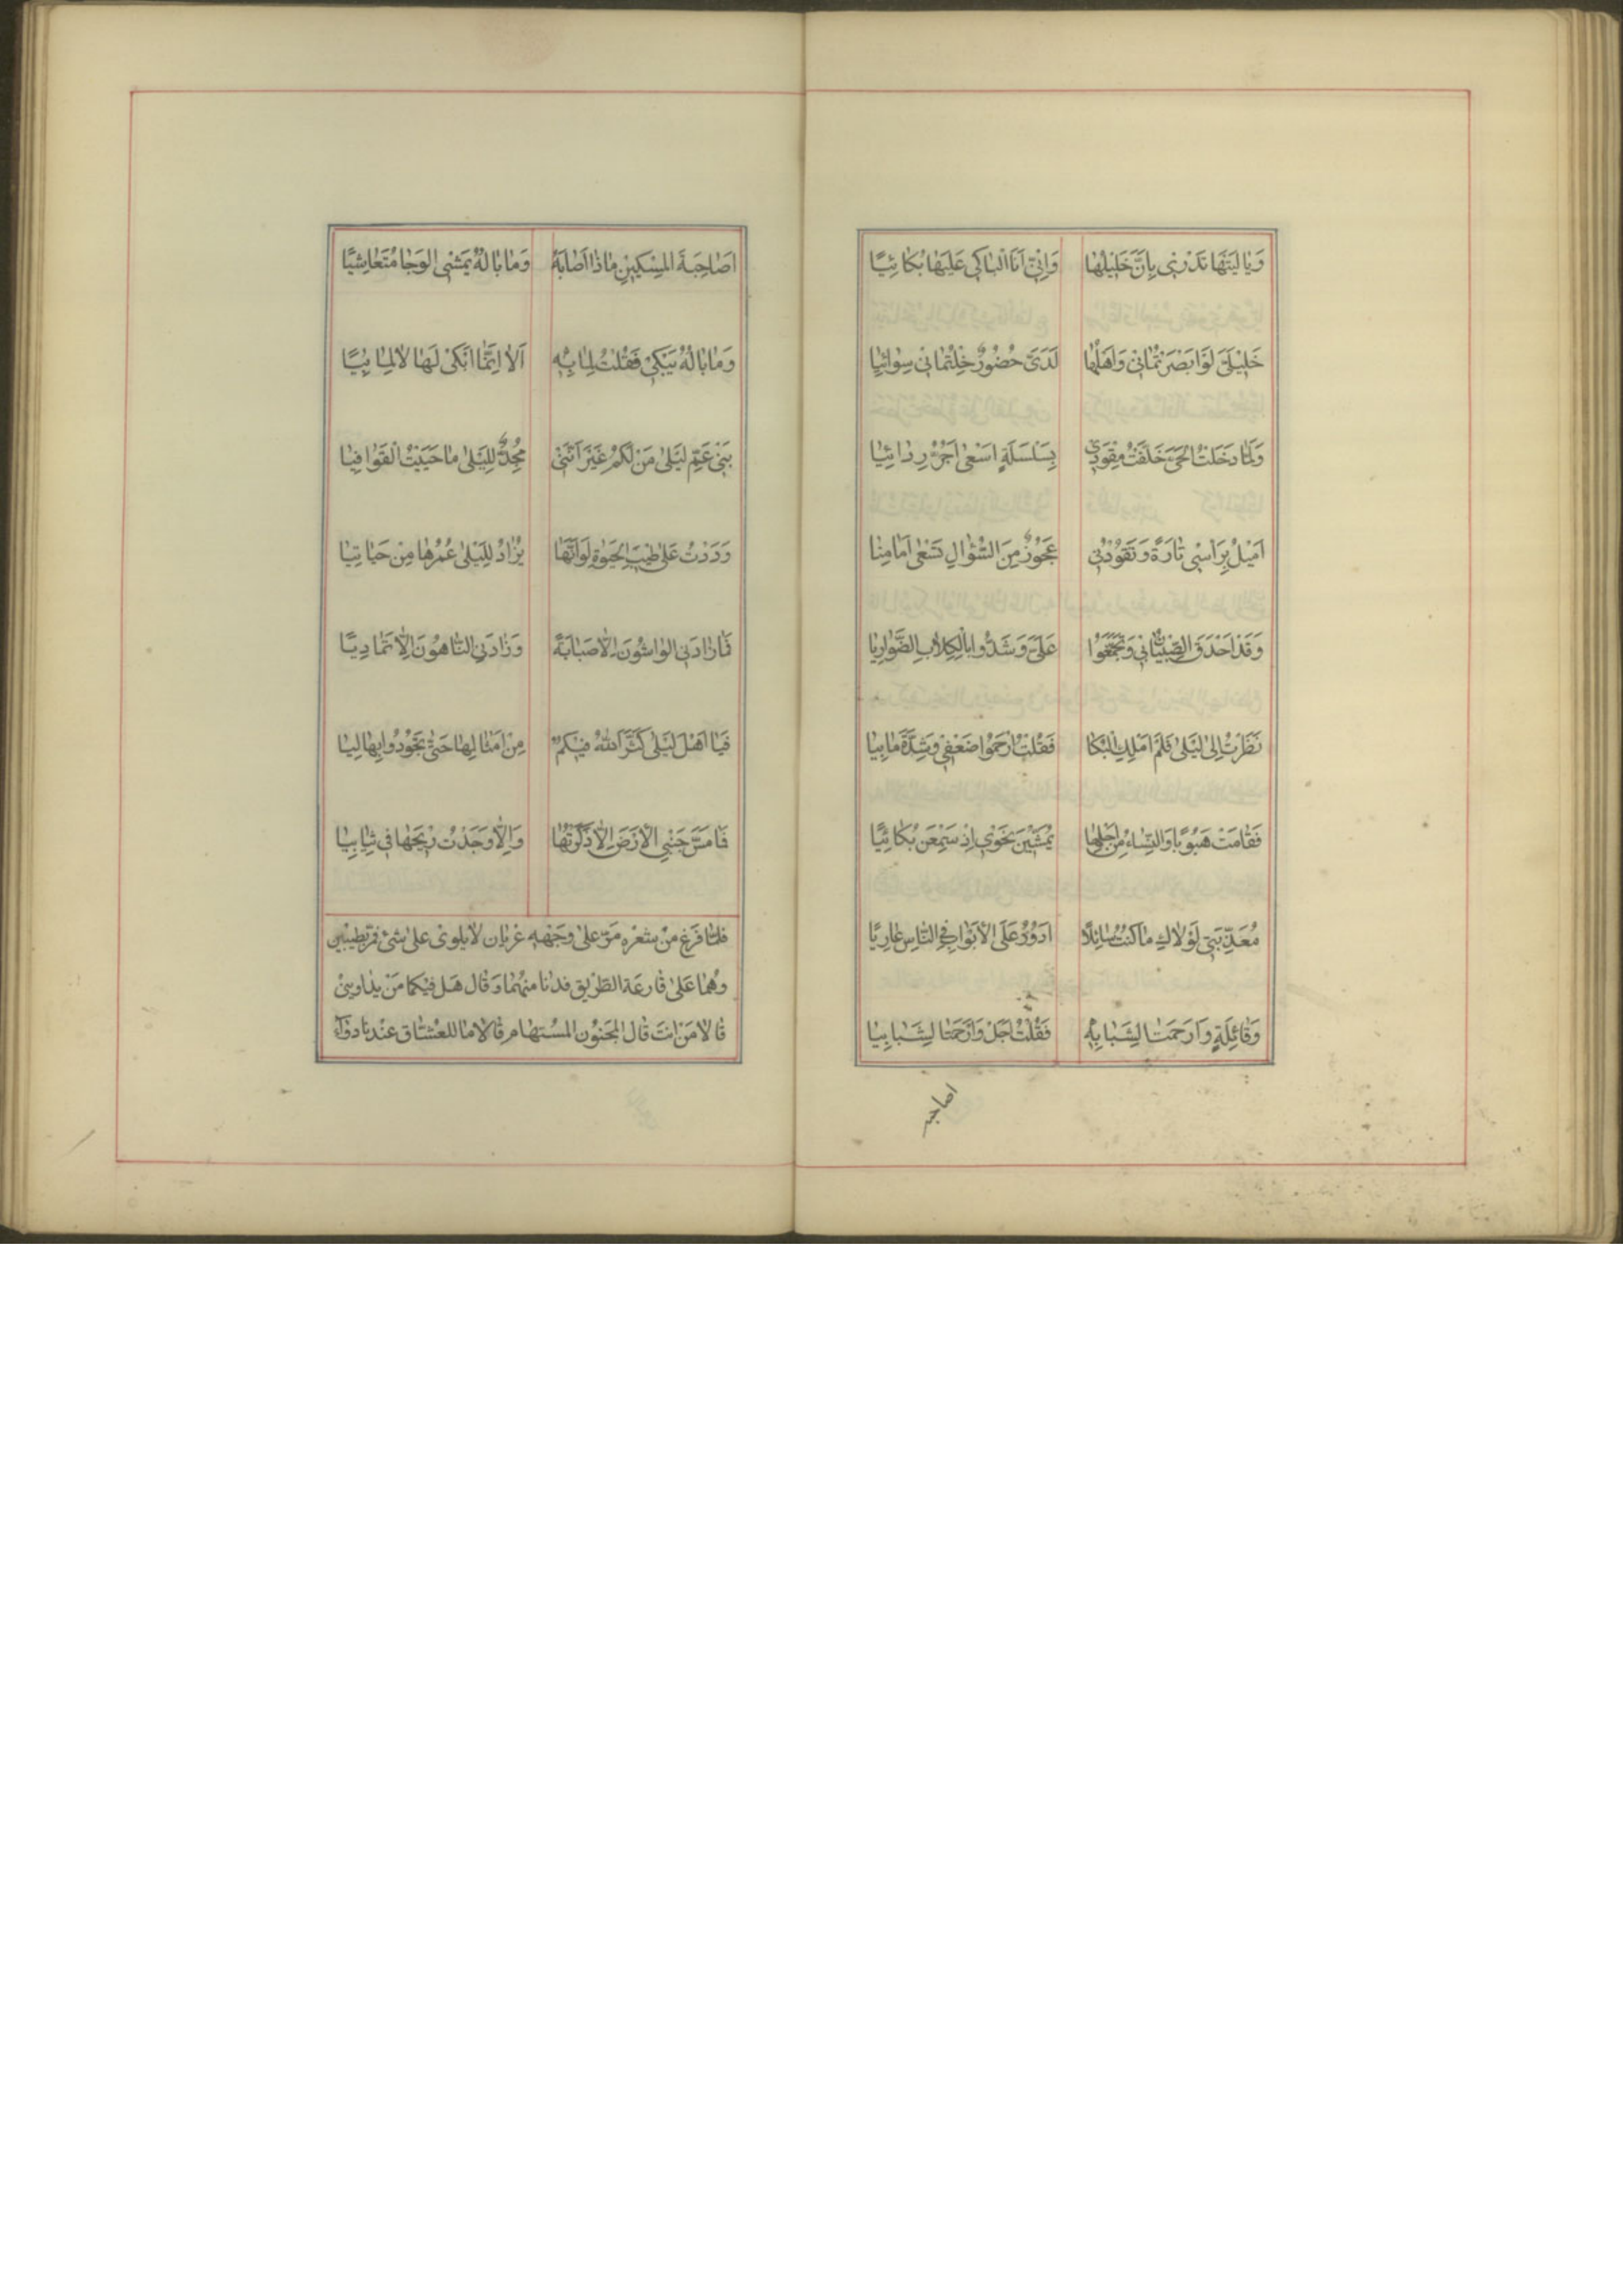 وَيٰا لَيْتَهٰا تَدْرِيْ بِاَنَّ خَلِيْلَهٰا وَاِنّيْ اَنَا الْبٰاكي عَلَيْهٰا بُكٰائِيًا
خَلِيْلَيَّ لَوْ اَبْصَرْتُمٰانيْ وَاَهْلُهٰا لَدَيَّ حُضُوْرٌ خِلْتُمٰانيْ سِوٰائِيٰا
وَلَمّٰا دَخَلْتُ الحَيَّ خَلَّفْتُ مِقْوَدِيْ بِسِلْسِلَةٍ اَسْعىٰ اَجُرُّ رِدٰائِيٰا
اَمِيْلُ بِرَاْسِيْ تٰارَةً وَتَقُوْدُنيْ عَجُوْزٌ مِنَ السُّؤٰالِ تَسْعىٰ اَمٰامِيٰا
وَقَدْ اَحْدَقَ الصِّبْيٰانُ بيْ وَتَجَمَّعُوْا عَلَيَّ وَشَدُّوا بالْكِلاٰبِ الضَّوٰارِيٰا
نَظَرْتُ اِلىٰ لَيْلىٰ فَلَمْ اَمْلِكِ الْبُكٰا فَقُلْتُ ارْحَمُوْا ضَعْفيْ وَشِدَّةَ مٰابِيٰا
فَقٰامَتْ هُبُوْبًا وَالنِّسٰاءُ مِنْ اَجْلِهٰا يُمَشِّيْنَ نَحْوِيْ اِذْ سَمِعْنَ بُكٰائِيًا
مُعَذِّبَتيْ لَوْلاٰكِ مٰا كُنْتُ سٰائِلاً اَدُوْرُ عَلَى الْاَبْوٰابِ فِي النّٰاسِ عٰارِيًا
وَقٰائِلَةٍ وٰارَحْمَتٰا لِشَبٰابِهٖ فَقُلْتُ اَجَلْ وٰارَحْمَتٰا لِشَبٰابِيٰا
اصاحبه
اَصٰاحِبَةَ المِسْكِيْنِ مٰاذٰا اَصٰابَهُ وَمٰا بٰالُهُ يَمْشِي الوَجٰا مُتَعٰاشِيًا
وَمٰا بٰالُهُ يَبْكيْ فَقُلْتُ لِمٰا بِهٖ اَلاٰ اِنَّمٰا اَبْكيْ لَهٰا لاٰ لِمٰا بِيًا
بَنيْ عَمِّ لَيْلىٰ مَنْ لَكُمْ غَيْرَ اَنَّنيْ مُجِدٌّ لِلَيْلىٰ مٰا حَيَيْتُ الْقَوٰافِيٰا
وَدَدْتُ عَلىٰ طِيْبِ الحَيٰوةِ لَوْ اَنَّهٰا يُزٰادُ لِلَيْلىٰ عُمْرُهٰا مِنْ حَيٰاتِيٰا
فَمٰا زٰادَنيْ الوٰاشُوْنَ اِلاّٰ صَبٰابَةً وَزٰادَنيْ النّٰاهُوْنَ اِلاّٰ تَمٰادِيًا
فَيٰا اَهْلَ لَيْلىٰ كَثَّرَ اللهُ فِيْكُمُ مِنْ اَمْثٰالِهٰا حَتّىٰ تَجُوْدُوا بِهٰا لِيٰا
فَمٰا مَسَّ جَنْبِي الْاَرْضَ اِلاّٰ ذَكَرْتُهٰا وَاِلاّٰ وَجَدْتُ رِيْحَهٰا فيْ ثِيٰابِيٰا
فلمّا فرغ من شعره مرّ على وجهه عريان لا يلوي على شئ فمرّ بطبيبين
وهما على قارعة الطّريق فدنا منهما وقال هل فيكما من يداويني
قالا من انت قال المجنون المستهام قالا ما للعشّاق عندنا دوآء